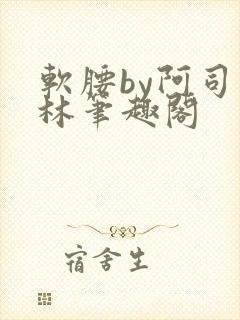 軟腰by阿司
林筆趣閣
宿舍生